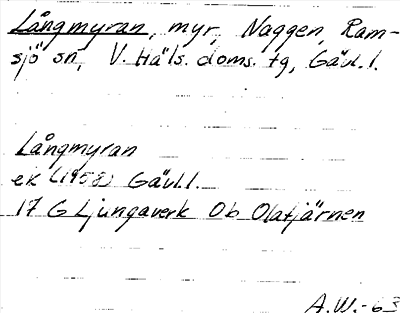 Långmyran, myr, Naggen, Ram-
sjö sn, V. Häls. doms. tg, Gävl. l.
Långmyran
ek (1958) Gävl. l.
17 G Ljungaverk Ob Olatjärnen
A.W.-63